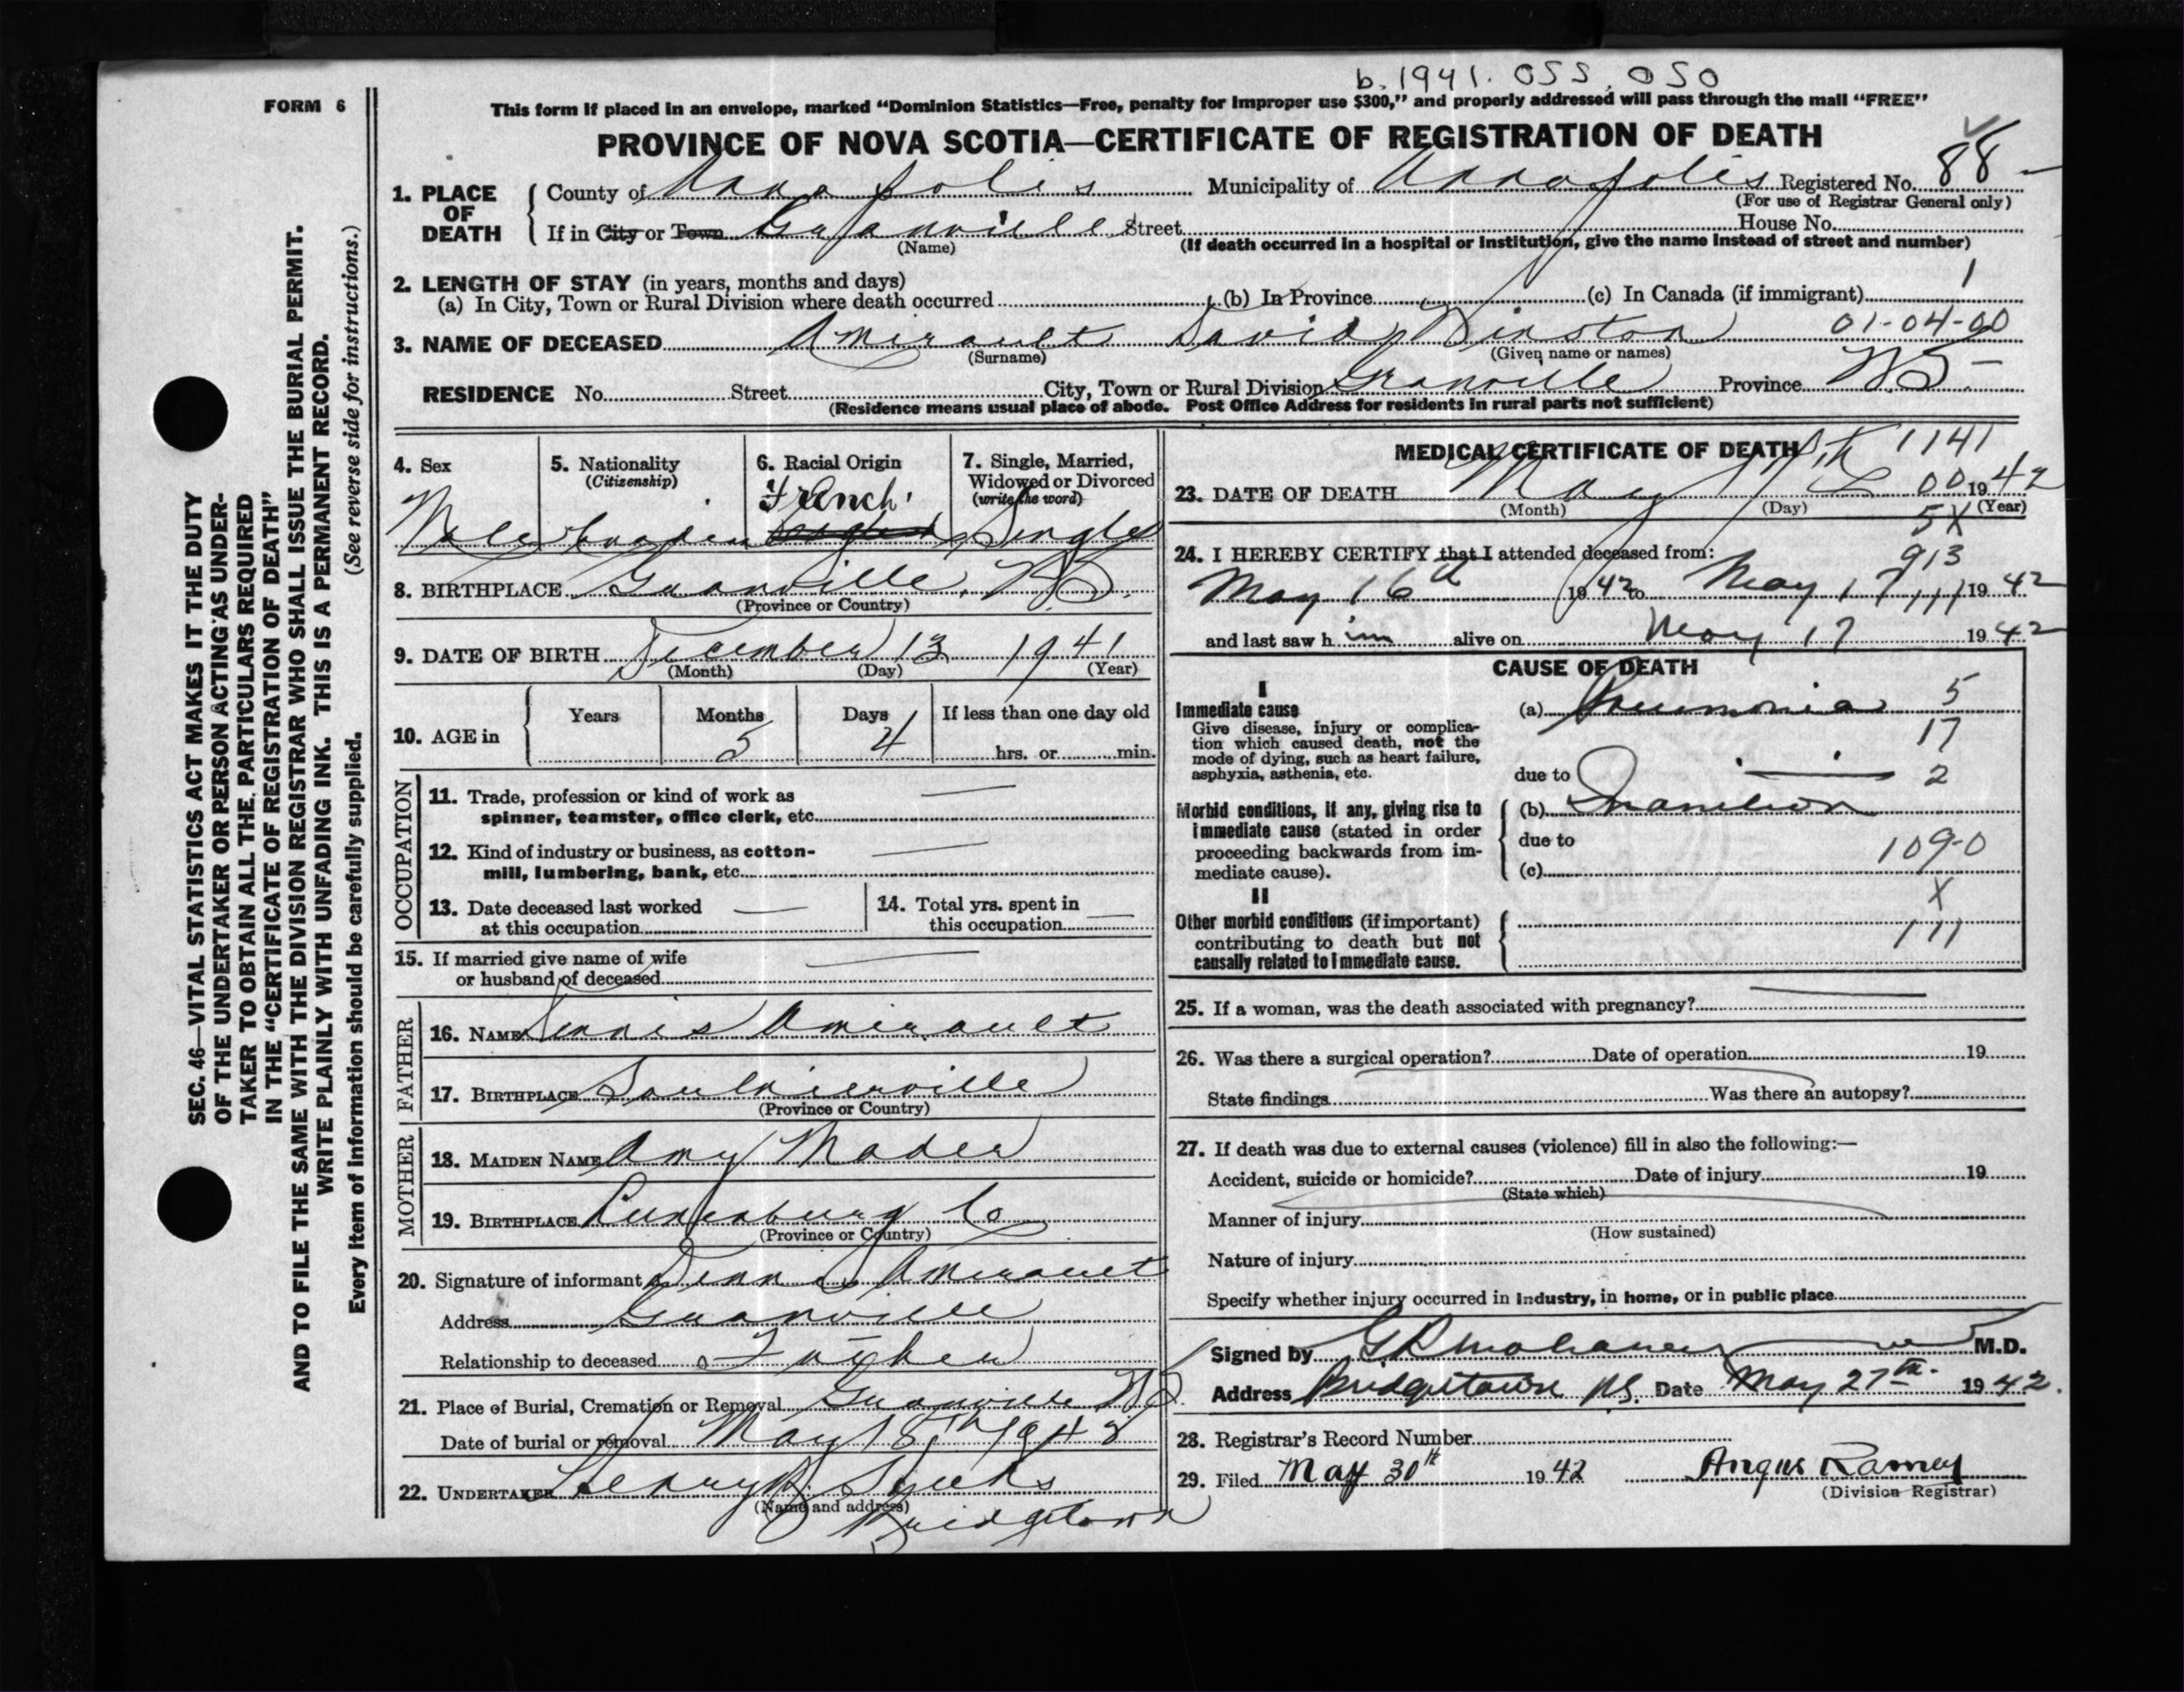 b. 1941. OSS, OSO
FORM 6
This form if placed in an envelope, marked “Dominion Statistics—Free, penalty for improper use $300,” and properly addressed will pass through the mail “FREE”
PROVINCE OF NOVA SCOTIA—CERTIFICATE OF REGISTRATION OF DEATH
1. PLACE OF DEATH County of Annapolis Municipality of Annapolis Registered No. 88
(For use of Registrar General only)
If in City or Town Granville Street House No.
(Name) (If death occurred in a hospital or institution, give the name instead of street and number)
2. LENGTH OF STAY (in years, months and days) 1
(a) In City, Town or Rural Division where death occurred (b) In Province (c) In Canada (if immigrant)
01-04-00
3. NAME OF DECEASED Amirault David Winston
(Surname) (Given name or names)
RESIDENCE No. Street City, Town or Rural Division Granville Province NS
(Residence means usual place of abode. Post Office Address for residents in rural parts not sufficient)
SEC. 46—VITAL STATISTICS ACT MAKES IT THE DUTY
OF THE UNDERTAKER OR PERSON ACTING AS UNDER-
TAKER TO OBTAIN ALL THE PARTICULARS REQUIRED
IN THE “CERTIFICATE OF REGISTRATION OF DEATH”
AND TO FILE THE SAME WITH THE DIVISION REGISTRAR WHO SHALL ISSUE THE BURIAL PERMIT.
WRITE PLAINLY WITH UNFADING INK. THIS IS A PERMANENT RECORD.
Every item of information should be carefully supplied. (See reverse side for instructions.)
4. Sex 5. Nationality 6. Racial Origin 7. Single, Married,
(Citizenship) Widowed or Divorced
French (write the word)
Male Canadian Single
8. BIRTHPLACE Granville, NS.
(Province or Country)
9. DATE OF BIRTH December 13 1941
(Month) (Day) (Year)
Years Months Days If less than one day old
10. AGE in 5 4 hrs. or min.
OCCUPATION
11. Trade, profession or kind of work as
spinner, teamster, office clerk, etc.
12. Kind of industry or business, as cotton-
mill, lumbering, bank, etc.
13. Date deceased last worked 14. Total yrs. spent in
at this occupation this occupation
15. If married give name of wife
or husband of deceased
FATHER
16. NAME Dennis Amirault
17. BIRTHPLACE Saulnierville
(Province or Country)
MOTHER
18. MAIDEN NAME Amy Mader
19. BIRTHPLACE Lunenburg Co
(Province or Country)
20. Signature of informant Dennis Amirault
Address Granville
Relationship to deceased Father
21. Place of Burial, Cremation or Removal Granville NS
Date of burial or removal May 18th 1942
22. UNDERTAKER Henry Hicks
(Name and address)
Bridgetown
MEDICAL CERTIFICATE OF DEATH 1141
23. DATE OF DEATH May 17th 00 1942
(Month) (Day) (Year)
5X
24. I HEREBY CERTIFY that I attended deceased from:
913
May 16 1942 to May 17 1942
111
and last saw him alive on May 17 1942
CAUSE OF DEATH
I
Immediate cause (a) Pneumonia 5
Give disease, injury or complica- 17
tion which caused death, not the
mode of dying, such as heart failure,
asphyxia, asthenia, etc. due to 2
Morbid conditions, if any, giving rise to (b) Inanition
immediate cause (stated in order due to
proceeding backwards from im- 109-0
mediate cause). (c)
II X
Other morbid conditions (if important)
contributing to death but not 111
causally related to immediate cause.
25. If a woman, was the death associated with pregnancy?
26. Was there a surgical operation? Date of operation 19
State findings Was there an autopsy?
27. If death was due to external causes (violence) fill in also the following:—
Accident, suicide or homicide? Date of injury 19
(State which)
Manner of injury
(How sustained)
Nature of injury
Specify whether injury occurred in industry, in home, or in public place
Signed by M.D.
Address Bridgetown N.S. Date May 27th 1942.
28. Registrar's Record Number
29. Filed May 30th 1942 Angus Ramey
(Division Registrar)